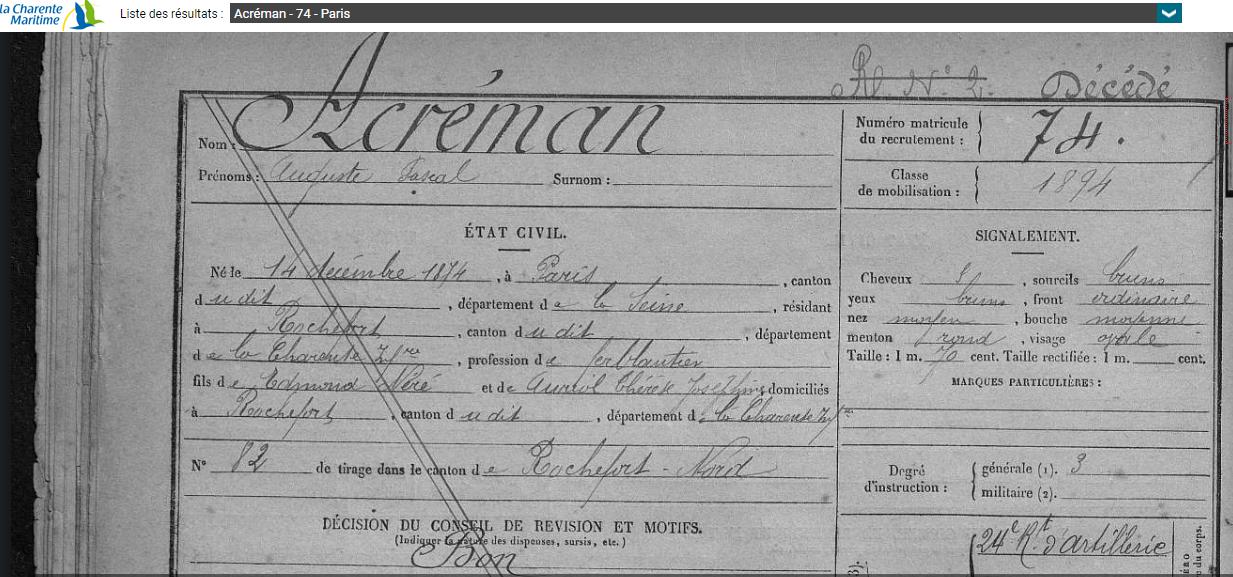 la Charente
Maritime
Liste des résultats : Acréman - 74 - Paris
Rl. N° 2. Décédé
Nom : Acréman
Numéro matricule
du recrutement : 74.
Prénoms : Auguste Pascal Surnom :
Classe
de mobilisation : 1894
ÉTAT CIVIL.
Né le 14 décembre 1874, à Paris, canton
dudit, département de la Seine, résidant
à Rochefort, canton dudit, département
de la Charente Infre, profession de ferblantier
fils de Edmond Néré et de Auriol Thérèse Joséphine domiciliés
à Rochefort, canton dudit, département de la Charente Infre
N° 82 de tirage dans le canton de Rochefort - Nord
SIGNALEMENT.
Cheveux , sourcils bruns
yeux bruns, front ordinaire
nez moyen, bouche moyenne
menton rond, visage ovale
Taille : 1 m. 70 cent. Taille rectifiée : 1 m. cent.
MARQUES PARTICULIÈRES :
Degré
d'instruction :
générale (1). 3
militaire (2).
DÉCISION DU CONSEIL DE REVISION ET MOTIFS.
(Indiquer la nature des dispenses, sursis, etc.)
Bon
24e Rt d'artillerie
du corps.